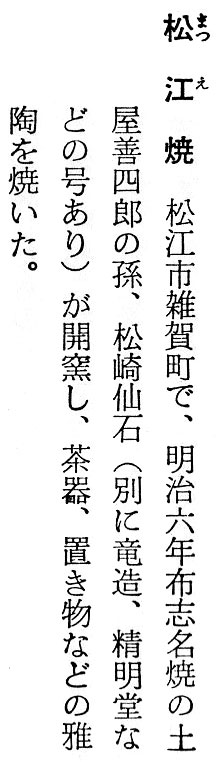 松江焼　松江市雑賀町で、明治六年布志名焼の土
屋善四郎の孫、松崎仙石（別に竜造、精明堂な
どの号あり）が開窯し、茶器、置き物などの雅
陶を焼いた。
まつえ